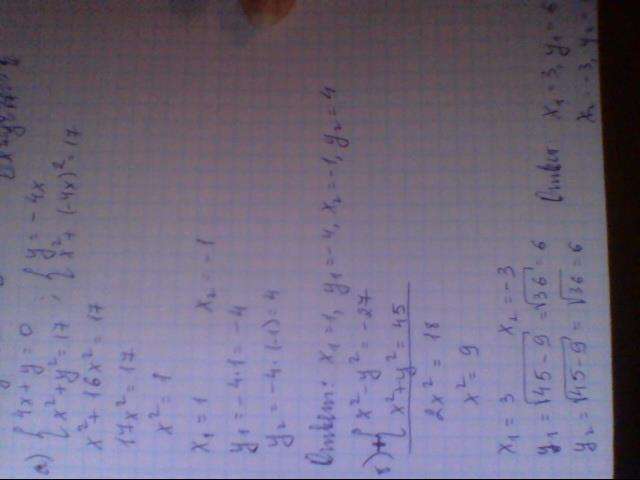 а) { 4x + y = 0
{ x² + y² = 17 ; { y = -4x
{ x² + (-4x)² = 17
x² + 16x² = 17
17x² = 17
x² = 1
x₁ = 1 x₂ = -1
y₁ = -4·1 = -4
y₂ = -4·(-1) = 4
Ответ: x₁ = 1, y₁ = -4, x₂ = -1, y₂ = 4
б) + { x² - y² = -27
{ x² + y² = 45
2x² = 18
x² = 9
x₁ = 3 x₂ = -3
y₁ = √45-9 = √36 = 6
y₂ = √45-9 = √36 = 6
Ответ x₁ = 3, y₁ = 6
x₂ = -3, y₂ =